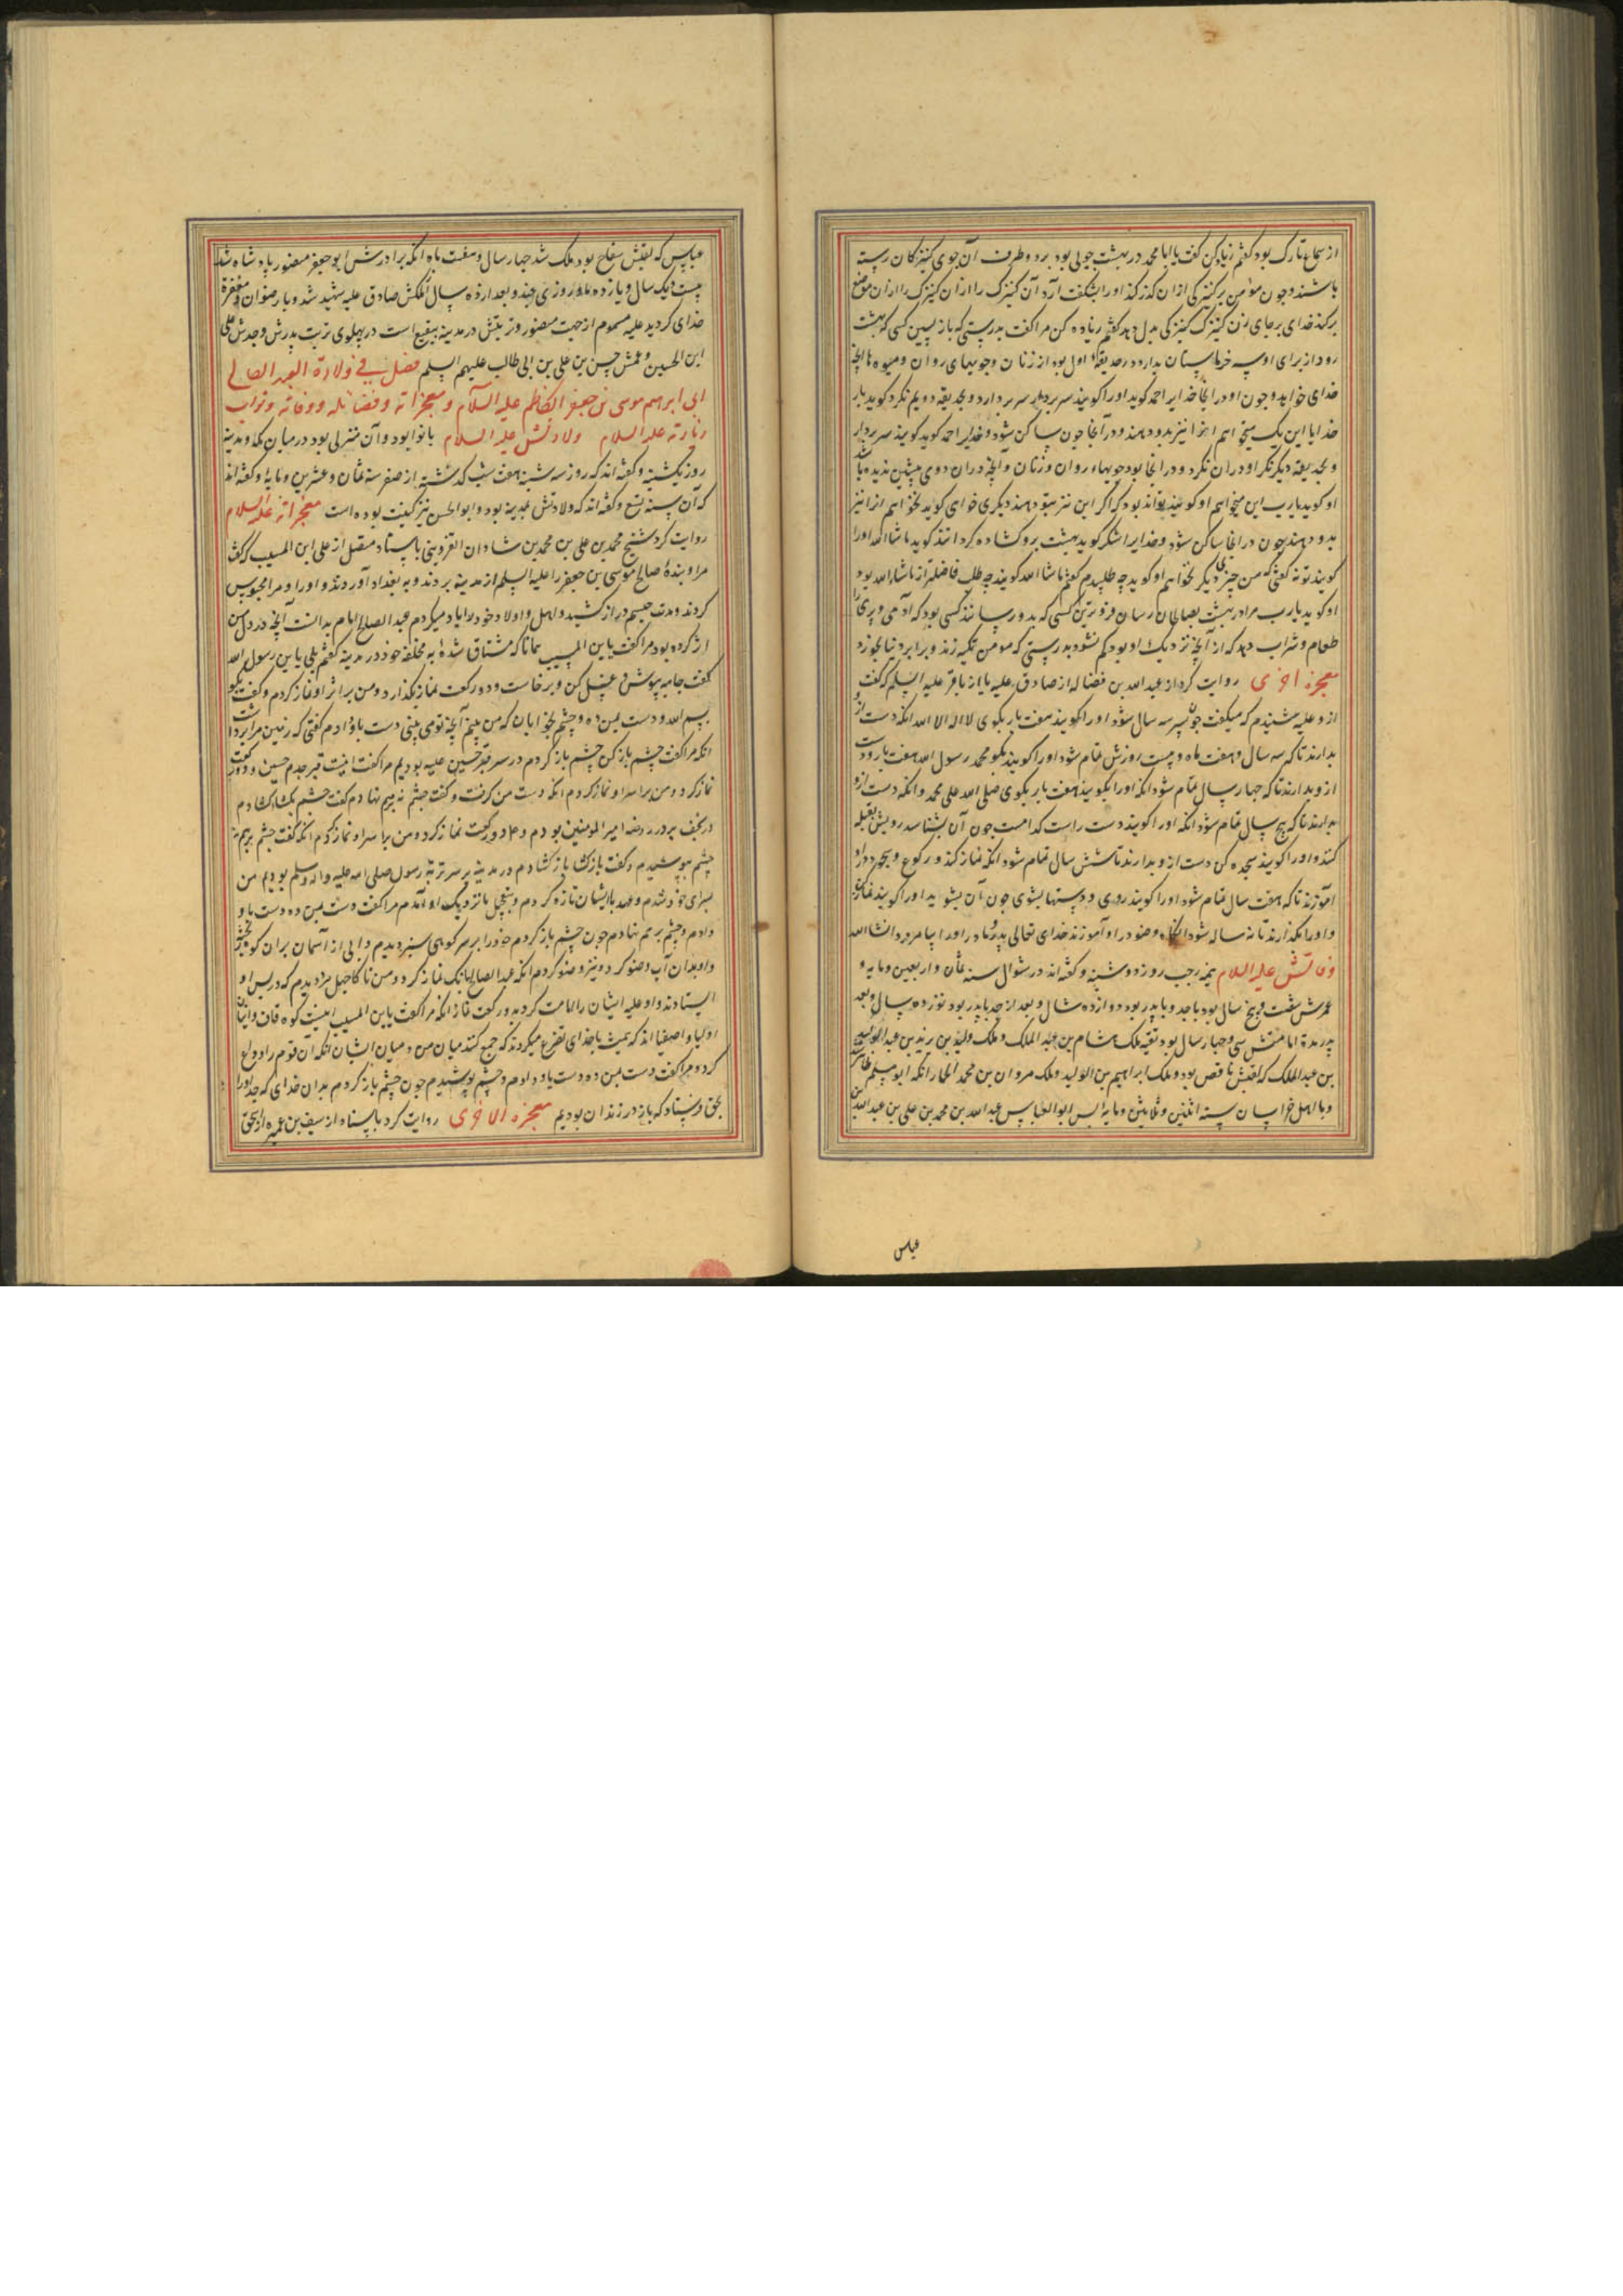 از سماع تارک بود گفتم زیاده کن گفت یا ابا محمد در بهشت جویی بود بر دو طرف آن جوی کنیزکان رسته
باشند و چون مؤمن بر کنیزکی از آن گذر کند او را بشگفت آرد آن کنیزک را از آن موضع
برکند خدای بر جای آن کنیزک کنیزکی بدل دهد گفتم زیاده کن مرا گفت بدرستی که باز پسین کسی که بهشت
رود از برای او سه بدارد در حدیقهٔ اول بود از زنان و جویهای روان و میوه‌ها آنچه
خدای خواهد و چون او در آنجا خدایرا حمد گوید او را گویند سر بردار سر بردارد و بحدیقه دویم نگرد گوید بار
خدایا این یک میخواهم آنرا نیز بدو دهند و در آنجا چون ساکن شود و خدایرا حمد گوید گویند سر بردار
و بحدیقه دیگر نگر او در آن نگرد و در آنجا بود جویهاء روان و زنان و آنچه در آن دوی پیشین ندیده باشد
او گوید یارب این میخواهم او گویند تواند بود که اگر این نیز بتو دهند دیگری خواهی گوید نخواهم آنرا نیز
بدو دهند چون در آنجا ساکن شود و خدایرا شکر گوید بهشت برو گشاده گردانند گوید ماشاالله او را
گویند تو نه گفتی که من چیزی دیگر نخواهم او گوید چه طلبیدم گفتم ماشاالله گویند چه طلب فاضلتر از ماشاءالله بود
او گوید یارب مرا در بهشت بصالحان رسان فروترین کسی که بدو رسانند کسی بود که آدمی و پری را
طعام و شراب دهد که از آنچه نزدیک او بود کم نشود بدرستی که مومن تکیه زند و برابر دنیا بخورد
معجزه اخری روایت کرد از عبدالله بن فضاله از صادق علیه یا از باقر علیه السلم که گفت
از و علیه شنیدم که میگفت چون پسر سه سال شود او را گویند هفت بار بگوی لا اله الا الله آنگه دست ازو
بدارند تا که سه سال و هفت ماه و بیست روزش تمام شود او را گویند بگو محمد رسول الله هفت بار و دست
ازو بدارند تا که چهار سال تمام شود آنگه او را بگویند هفت بار بگوی صلی الله علی محمد و آنگه دست ازو
بدارند تا که پنج سال تمام شود آنگه او را گویند دست راست کدامست چون آن بشناسد رویش بقبله
کنند و او را گویند سجده کن دست ازو بدارند تا شش سال تمام شود آنگه نماز کند و رکوع و سجود در او
آموزند تا که هفت سال تمام شود او را گویند روی و دستها بشوی چون آن بشوید او را گویند نماز کن
و او را بگذارند تا نه ساله شود آنگاه وضو در او آموزند خدای تعالی پدر و مادر او را بیامرزد انشاالله
وفاتش علیه السلام نیمه رجب روز دوشنبه و گفته‌اند در شوال سنه ثمان و اربعین و مایه و
عمرش شصت و پنج سال بود با جد و با پدر بود دوازده سال و بعد از جد با پدر بود نوزده سال و بعد
پدر مدة امامتش سی و چهار سال بود بقیه ملک هشام بن عبد الملک و ملک ولید بن یزید بن عبد الملک
بن عبدالملک که لقبش ناقص بود و ملک ابراهیم بن الولید و ملک مروان بن محمد الحمار آنگه ابو مسلم ظاهر شد
و با اهل خراسان سنه اثنین و ثلثین و مایه پس ابو العباس عبدالله بن محمد بن علی بن عبدالله بن
عباس
عباس که لقبش سفاح بود ملک شد چهار سال و هشت ماه آنگه برادرش ابو جعفر منصور پادشاه شد
بیست و یک سال و یازده ماه و روزی چند و بعد از ده سال از ملکش صادق علیه شهید شد و با رضوان و مغفرة
خدای گردید علیه مسموم از جهت منصور و تربتش در مدینه ببقیع است در پهلوی تربت پدرش و جدش علی
ابن الحسین و عمش حسن بن علی بن ابی طالب علیهم السلم فصل فی ولادة العبد الصالح
ابی ابرهیم موسی بن جعفر الکاظم علیه السلام و معجزاته و فضائله و وفاته و ثواب
زیارته علیه السلام ولادتش علیه السلام بابوا بود و آن منزلی بود در میان مکه و مدینه
روز یکشنبه و گفته‌اند که روز سه شنبه هفت شب گذشته از صفر سنه ثمان و عشرین و مایه و گفته‌اند
که آن سنه تسع و گفته‌اند که ولادتش بمدینه بود و ابو الحسن نیز کنیت بوده است معجزاته علیه السلام
روایت کرد شیخ محمد بن علی بن محمد بن شادان القزوینی باسناد متصل از علی ابن المسیب که گفت
مرا و بندهٔ صالح موسی بن جعفر را علیه السلم از مدینه بردند و به بغداد آوردند و او را و مرا محبوس
کردند و مدت حبسم دراز کشید و اهل و اولاد خود را یاد میکردم عبد الصالح امام بدانست آنچه در دل من
اثر کرده بود مرا گفت یابن المسیب همانا که مشتاق شدهٔ به مخلفه خود در مدینه گفتم بلی یابن رسول الله
گفت جامه بپوش و غسل کن و برخاست و دو رکعت نماز بگذارد و من بر اثر او نماز کردم و گفت بگو
بسم الله و دست بمن ده و چشم بخوابان که من بینم آنچه تو می بینی دست باو دادم گفتی که زمین مرا برداشت
آنگه مرا گفت چشم باز کن چشم باز کردم در سر قبر حسین علیه بودیم مرا گفت اینست قبر جدم حسین و دو رکعت
نماز کرد و من براسر او نماز کردم آنگه دست من گرفت و گفت چشم نه بهم نهادم گفت چشم بگشا گشادم
در نجف بر در روضه امیر المومنین بودم و دو رکعت نماز کرد و من براسر او نماز کردم آنگه گفت چشم برهم نه
چشم بپوشیدم و گفت باز گشا باز گشادم در مدینه بر سر تربة رسول صلی الله علیه و اله و سلم بودیم من
بسرای خود شدم و عهد باایشان تازه کردم و بتعجیل با نزدیک او آمدم مرا گفت دست بمن ده دست باو
دادم و چشم بر هم نهادم چون چشم باز کردم خود را بر سر کوهی سبز دیدم و آبی از آسمان بر آن کوه
و او بدان آب وضو کرد و نیز وضو کردم آنگه عبد الصالح بانک نماز کرد و من ناگاه چهل مرد دیدم که در پس او
ایستادند و او علیه ایشان را امامت کرد بدو رکعت نماز آنگه مرا گفت یابن المسیب اینست کوه قاف و اینان
اولیا و اصفیا اند که همیشه باخدای تضرع میکردند که جمع کند میان من و میان ایشان آنگه آن قوم را وداع
کرد و مرا گفت دست بمن ده دست باو دادم و چشم بپوشیدم چون چشم باز کردم بدان خدای که جد او را
بحق فرستاد که باز در زندان بودیم معجزه الاخری روایت کرد باسناد از سیف بن عمیره از اسحق